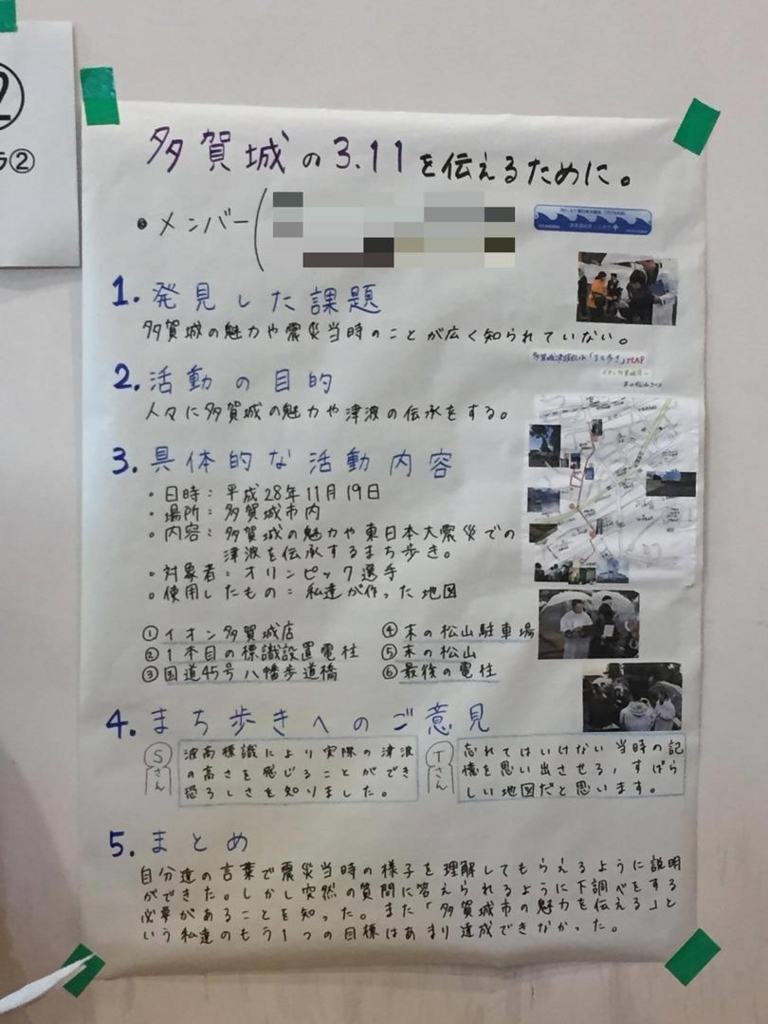 ②
②
多賀城の3.11を伝えるために。
・メンバー(
1. 発見した課題
多賀城の魅力や震災当時のことが広く知られていない。
2. 活動の目的
人々に多賀城の魅力や津波の伝承をする。
3. 具体的な活動内容
・日時：平成28年11月19日
・場所：多賀城市内
・内容：多賀城の魅力や東日本大震災での
津波を伝承するまち歩き。
・対象者：オリンピック選手
・使用したもの：私達が作った地図
①イオン多賀城店
②1本目の標識設置電柱
③国道45号八幡歩道橋
④末の松山駐車場
⑤末の松山
⑥最後の電柱
4. まち歩きへのご意見
Sさん
波高標識により実際の津波
の高さを感じることができ
恐ろしさを知りました。
Tさん
忘れてはいけない当時の記
憶を思い出させる、すばら
しい地図だと思います。
5. まとめ
自分達の言葉で震災当時の様子を理解してもらえるように説明
ができた。しかし突然の質問に答えられるように下調べをする
必要があることを知った。また「多賀城市の魅力を伝える」と
いう私達のもう1つの目標はあまり達成できなかった。